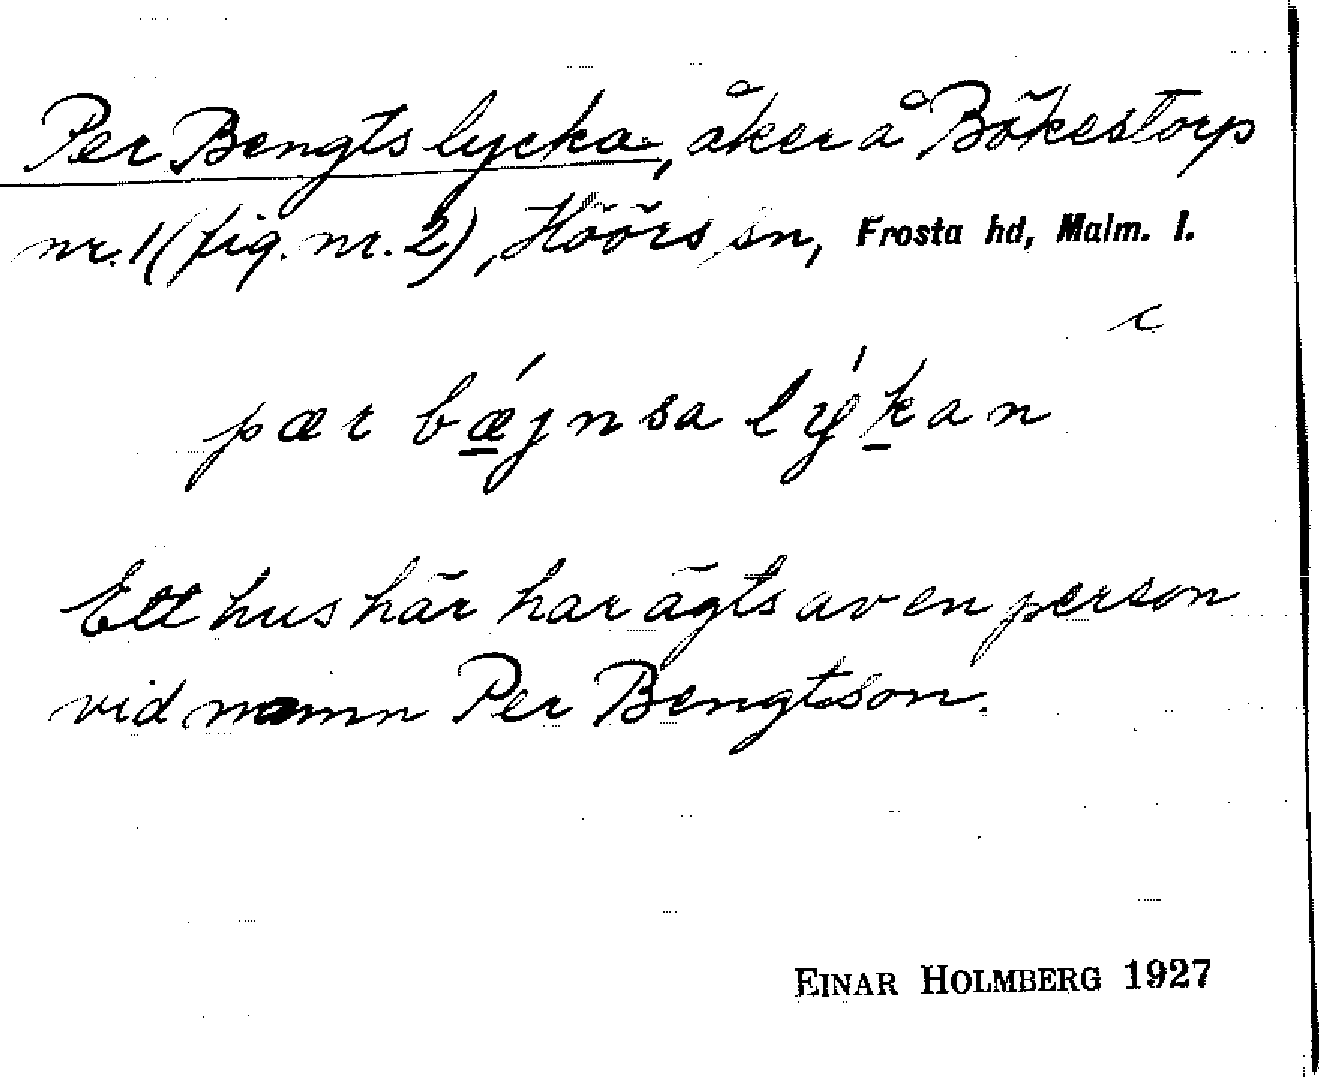 Per Bengts lycka, åker å Bökestorp
nr. 1 (fig. nr. 2), Höörs sn, Frosta hd, Malm. l.
c
pær bǽjnsa lýkan
Ett hus här har ägts av en person
vid namn Per Bengtson.
EINAR HOLMBERG 1927